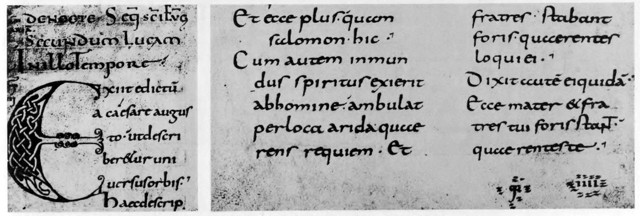 DE NOCTE
Secundum Lucam
In illo Tempore
Exiit edictū
a caesare augus
to· ut descri
beretur uni
uersus orbis·
haec descrip
Et ecce plus quam
salomon hic·
Cum autem inmun
dus spiritus exierit
abhomine· ambulat
per loca arida quae
rens requiem· Et
fratres· stabant
foris· quaerentes
loqui ei·
Dixit autē ei quidā·
Ecce mater & fra
tres tui foris stant·
quaerentes te·